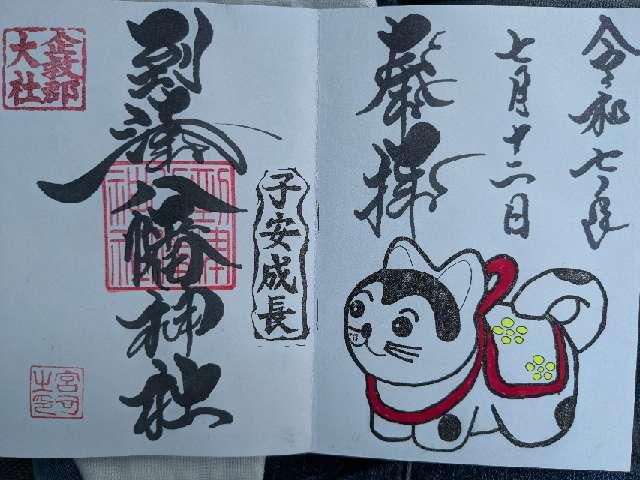 令和七年
七月十二日
奉拝
子安成長
到津八幡神社
企救郡
大社
宮司
之印